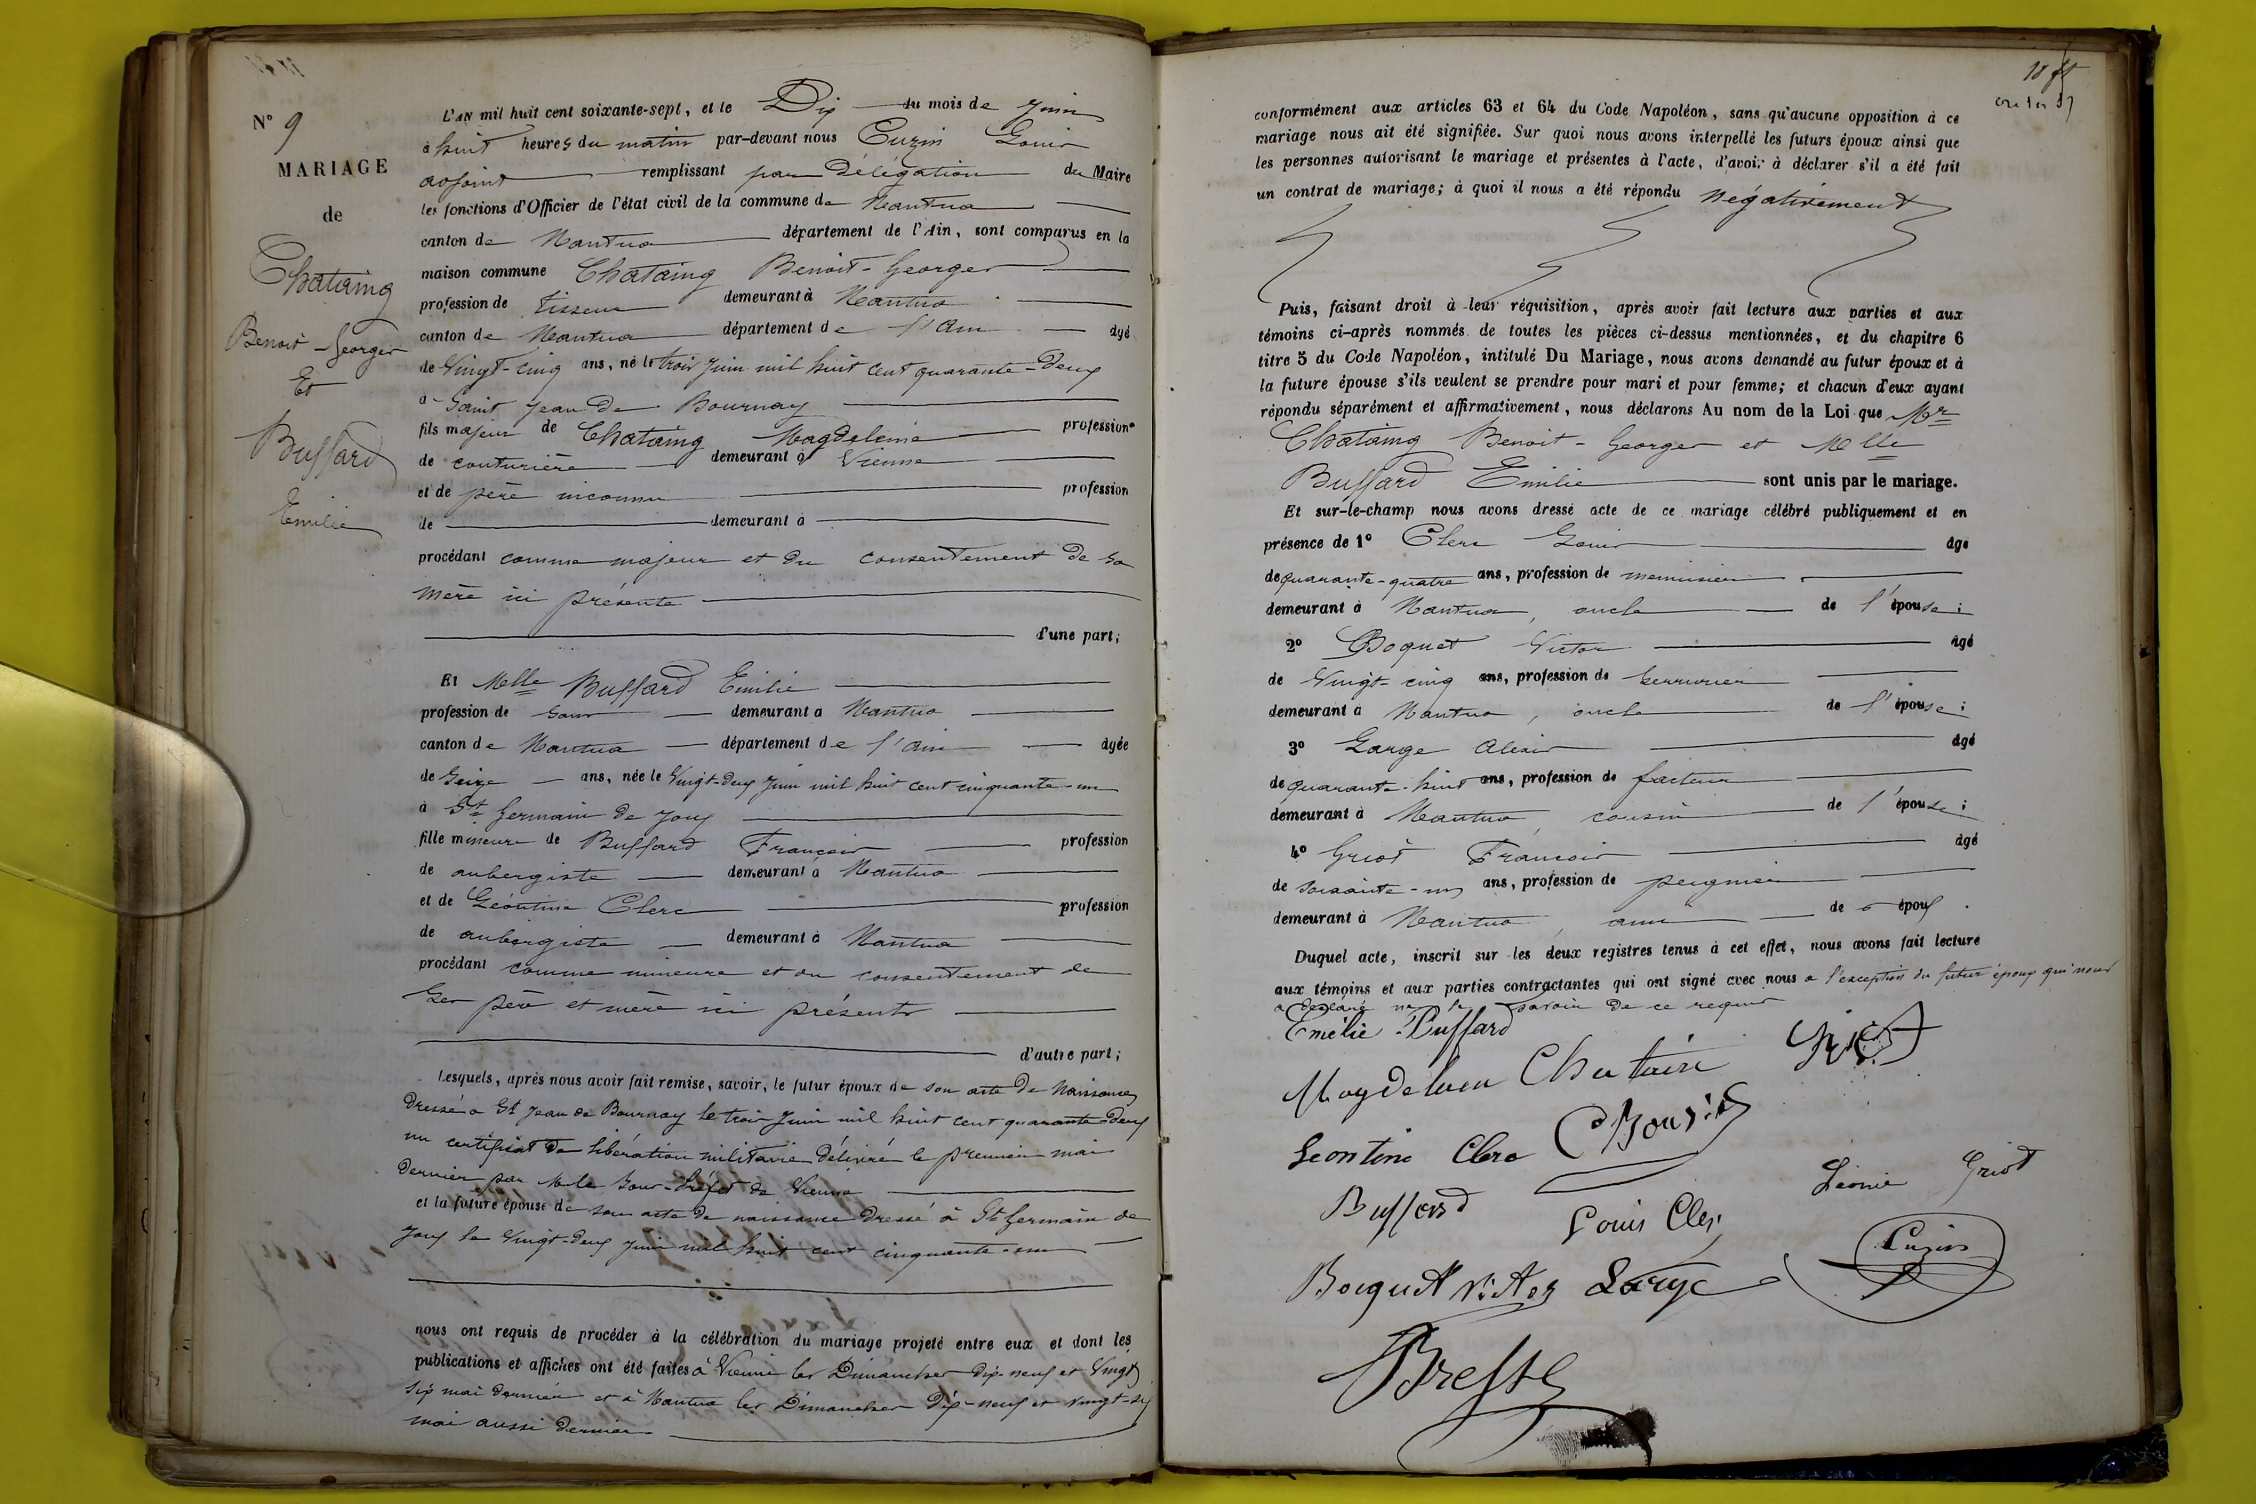 N° 9
MARIAGE
de
Chataing
Benoit-Georges
Et
Buffard
Emilie
L'AN mil huit cent soixante-sept, et le Dix du mois de Juin
à huit heures du matin par-devant nous Cuzin Louis
adjoint remplissant par délégation du Maire
les fonctions d'Officier de l'état civil de la commune de Nantua
canton de Nantua département de l'Ain, sont comparus en la
maison commune Chataing Benoit-Georges
profession de tisseur demeurant à Nantua
canton de Nantua département de l'Ain âgé
de Vingt-cinq ans, né le trois Juin mil huit cent quarante-deux
à Saint Jean de Bournay
fils majeur de Chataing Magdeleine profession
de couturière demeurant à Vienne
et de père inconnu profession
de demeurant à
procédant comme majeur et du consentement de sa
mère ici présente
d'une part;
Et Melle Buffard Emilie
profession de sans demeurant à Nantua
canton de Nantua département de l'Ain âgée
de Seize ans, née le Vingt-deux Juin mil huit cent cinquante-un
à St Germain de Joux
fille mineure de Buffard François profession
de aubergiste demeurant à Nantua
et de Léontine Clerc profession
de aubergiste demeurant à Nantua
procédant comme mineure et du consentement de
Ses père et mère ici présents
d'autre part;
Lesquels, après nous avoir fait remise, savoir, le futur époux de son acte de Naissance
Dressé à St Jean de Bournay le trois Juin mil huit cent quarante-deux
un certificat de libération militaire délivré le premier mai
dernier par Mr le Sous-Préfet de Vienne
et la future épouse de son acte de naissance Dressé à St Germain de
Joux le Vingt-deux Juin mil huit cent cinquante-un
nous ont requis de procéder à la célébration du mariage projeté entre eux et dont les
publications et affiches ont été faites à Vienne les Dimanches dix-neuf et Vingt
Six mai dernier et à Nantua les Dimanches Dix-neuf et vingt-six
mai aussi dernier
conformément aux articles 63 et 64 du Code Napoléon, sans qu'aucune opposition à ce
mariage nous ait été signifiée. Sur quoi nous avons interpellé les futurs époux ainsi que
les personnes autorisant le mariage et présentes à l'acte, d'avoir à déclarer s'il a été fait
un contrat de mariage; à quoi il nous a été répondu négativement
Puis, faisant droit à leur réquisition, après avoir fait lecture aux parties et aux
témoins ci-après nommés de toutes les pièces ci-dessus mentionnées, et du chapitre 6
titre 5 du Code Napoléon, intitulé Du Mariage, nous avons demandé au futur époux et à
la future épouse s'ils veulent se prendre pour mari et pour femme; et chacun d'eux ayant
répondu séparément et affirmativement, nous déclarons Au nom de la Loi que Mr
Chataing Benoit-Georges et Melle
Buffard Emilie sont unis par le mariage.
Et sur-le-champ nous avons dressé acte de ce mariage célébré publiquement et en
présence de 1° Clerc Louis âgé
de quarante-quatre ans, profession de menuisier
demeurant à Nantua, oncle de l'épouse;
2° Boquet Victor âgé
de Vingt-cinq ans, profession de serrurier
demeurant à Nantua, oncle de l'épouse;
3° Large Alexis âgé
de quarante-huit ans, profession de facteur
demeurant à Nantua, cousin de l'épouse;
4° Griot François âgé
de soixante-un ans, profession de peignier
demeurant à Nantua, ami de époux.
Duquel acte, inscrit sur les deux registres tenus à cet effet, nous avons fait lecture
aux témoins et aux parties contractantes qui ont signé avec nous à l'exception du futur époux qui nous
a déclaré ne le savoir de ce requis
Emélie Buffard
Magdelaine Chatain Griot
Leontine Clerc Bouvier
Buffard Louis Clerc Léonie Griot
Bocquet Victor Large Cuzin